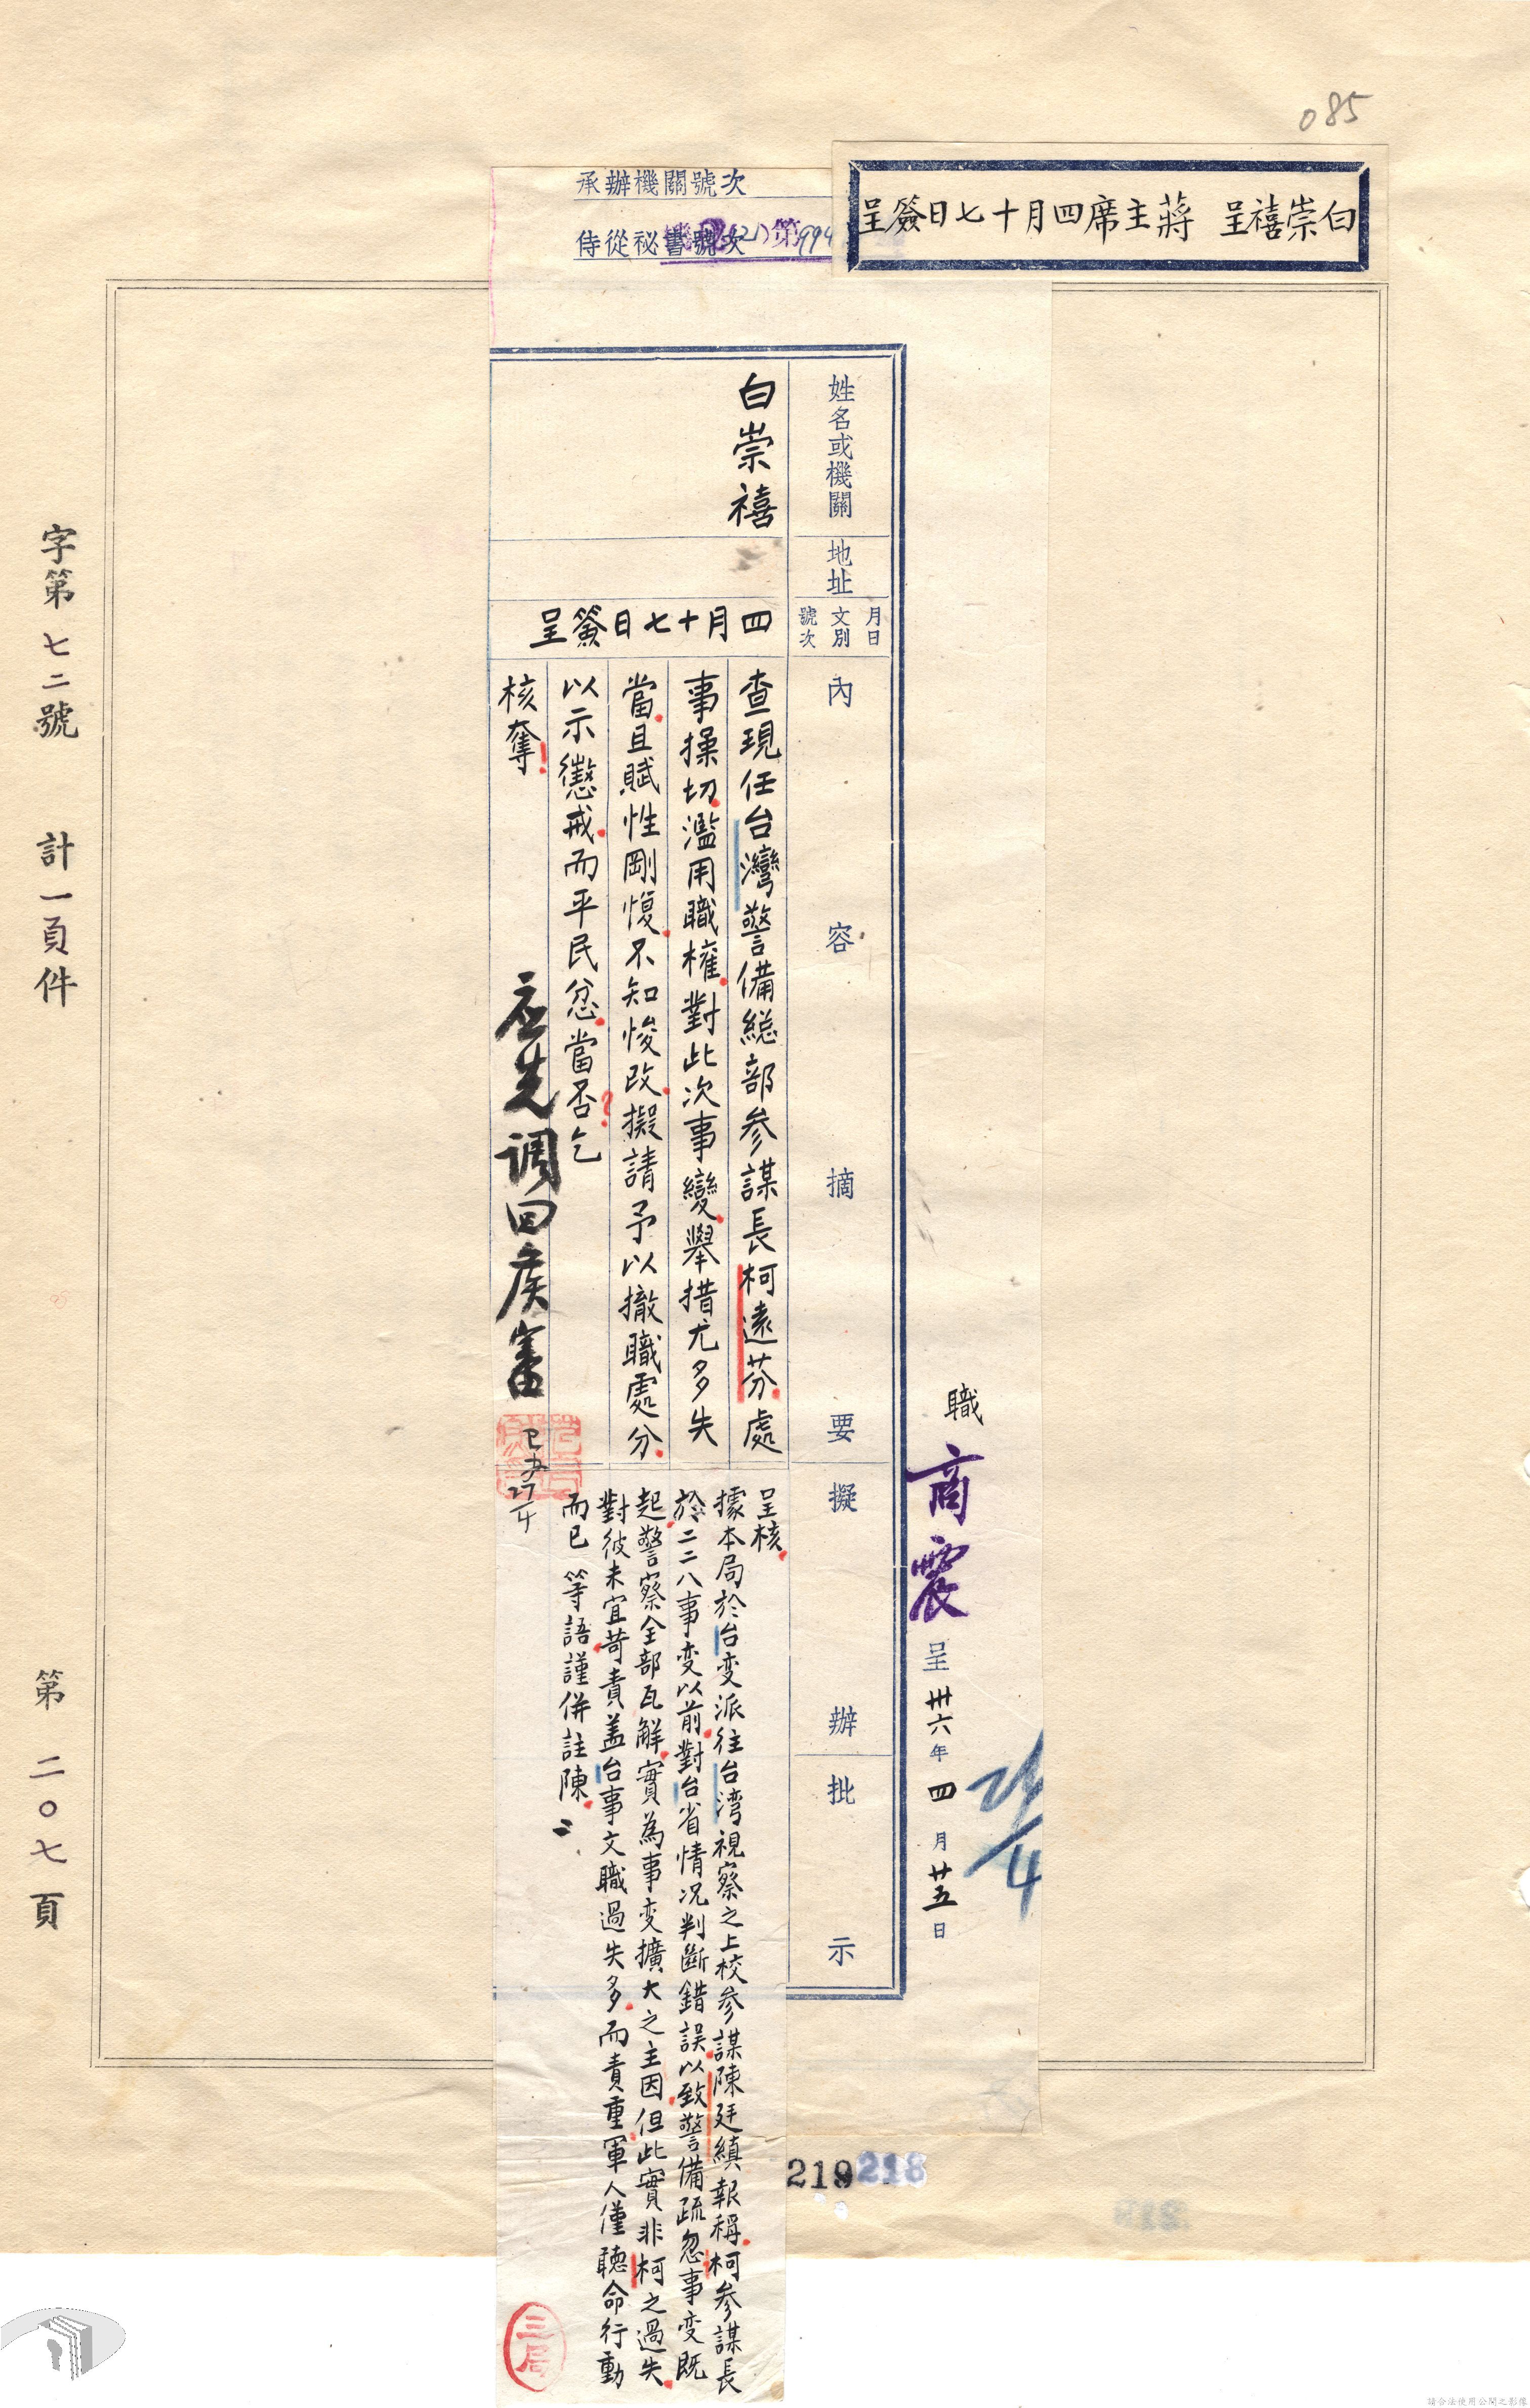 085
白崇禧呈 蔣主席四月十七日簽呈
承辦機關號次
侍從祕書號次
第994
姓名或機關
地址
月日
文別
號次
內容摘要
擬辦
批示
白崇禧
四月十七日簽呈
查現任台灣警備總部參謀長柯遠芬處
事操切濫用職權對此次事變舉措尤多失
當且賦性剛愎不知悛改擬請予以撤職處分
以示懲戒而平民忿當否乞
核奪
應先调回候審
27/4
呈核
據本局於台变派往台湾視察之上校參謀陳廷縝報稱柯參謀長
於二二八事变以前對台省情況判斷錯誤以致警備疏忽事变既
起警察全部瓦解實為事变擴大之主因但此實非柯之過失
對彼未宜苛責盖台事文職過失多而責重軍人僅聽命行動
而已 等語謹併註陳
三局
職 商震 呈 卅六年四月廿五日
25/4
219
218
字第七二號 計一頁件
第二〇七頁
請合法使用公開之影像